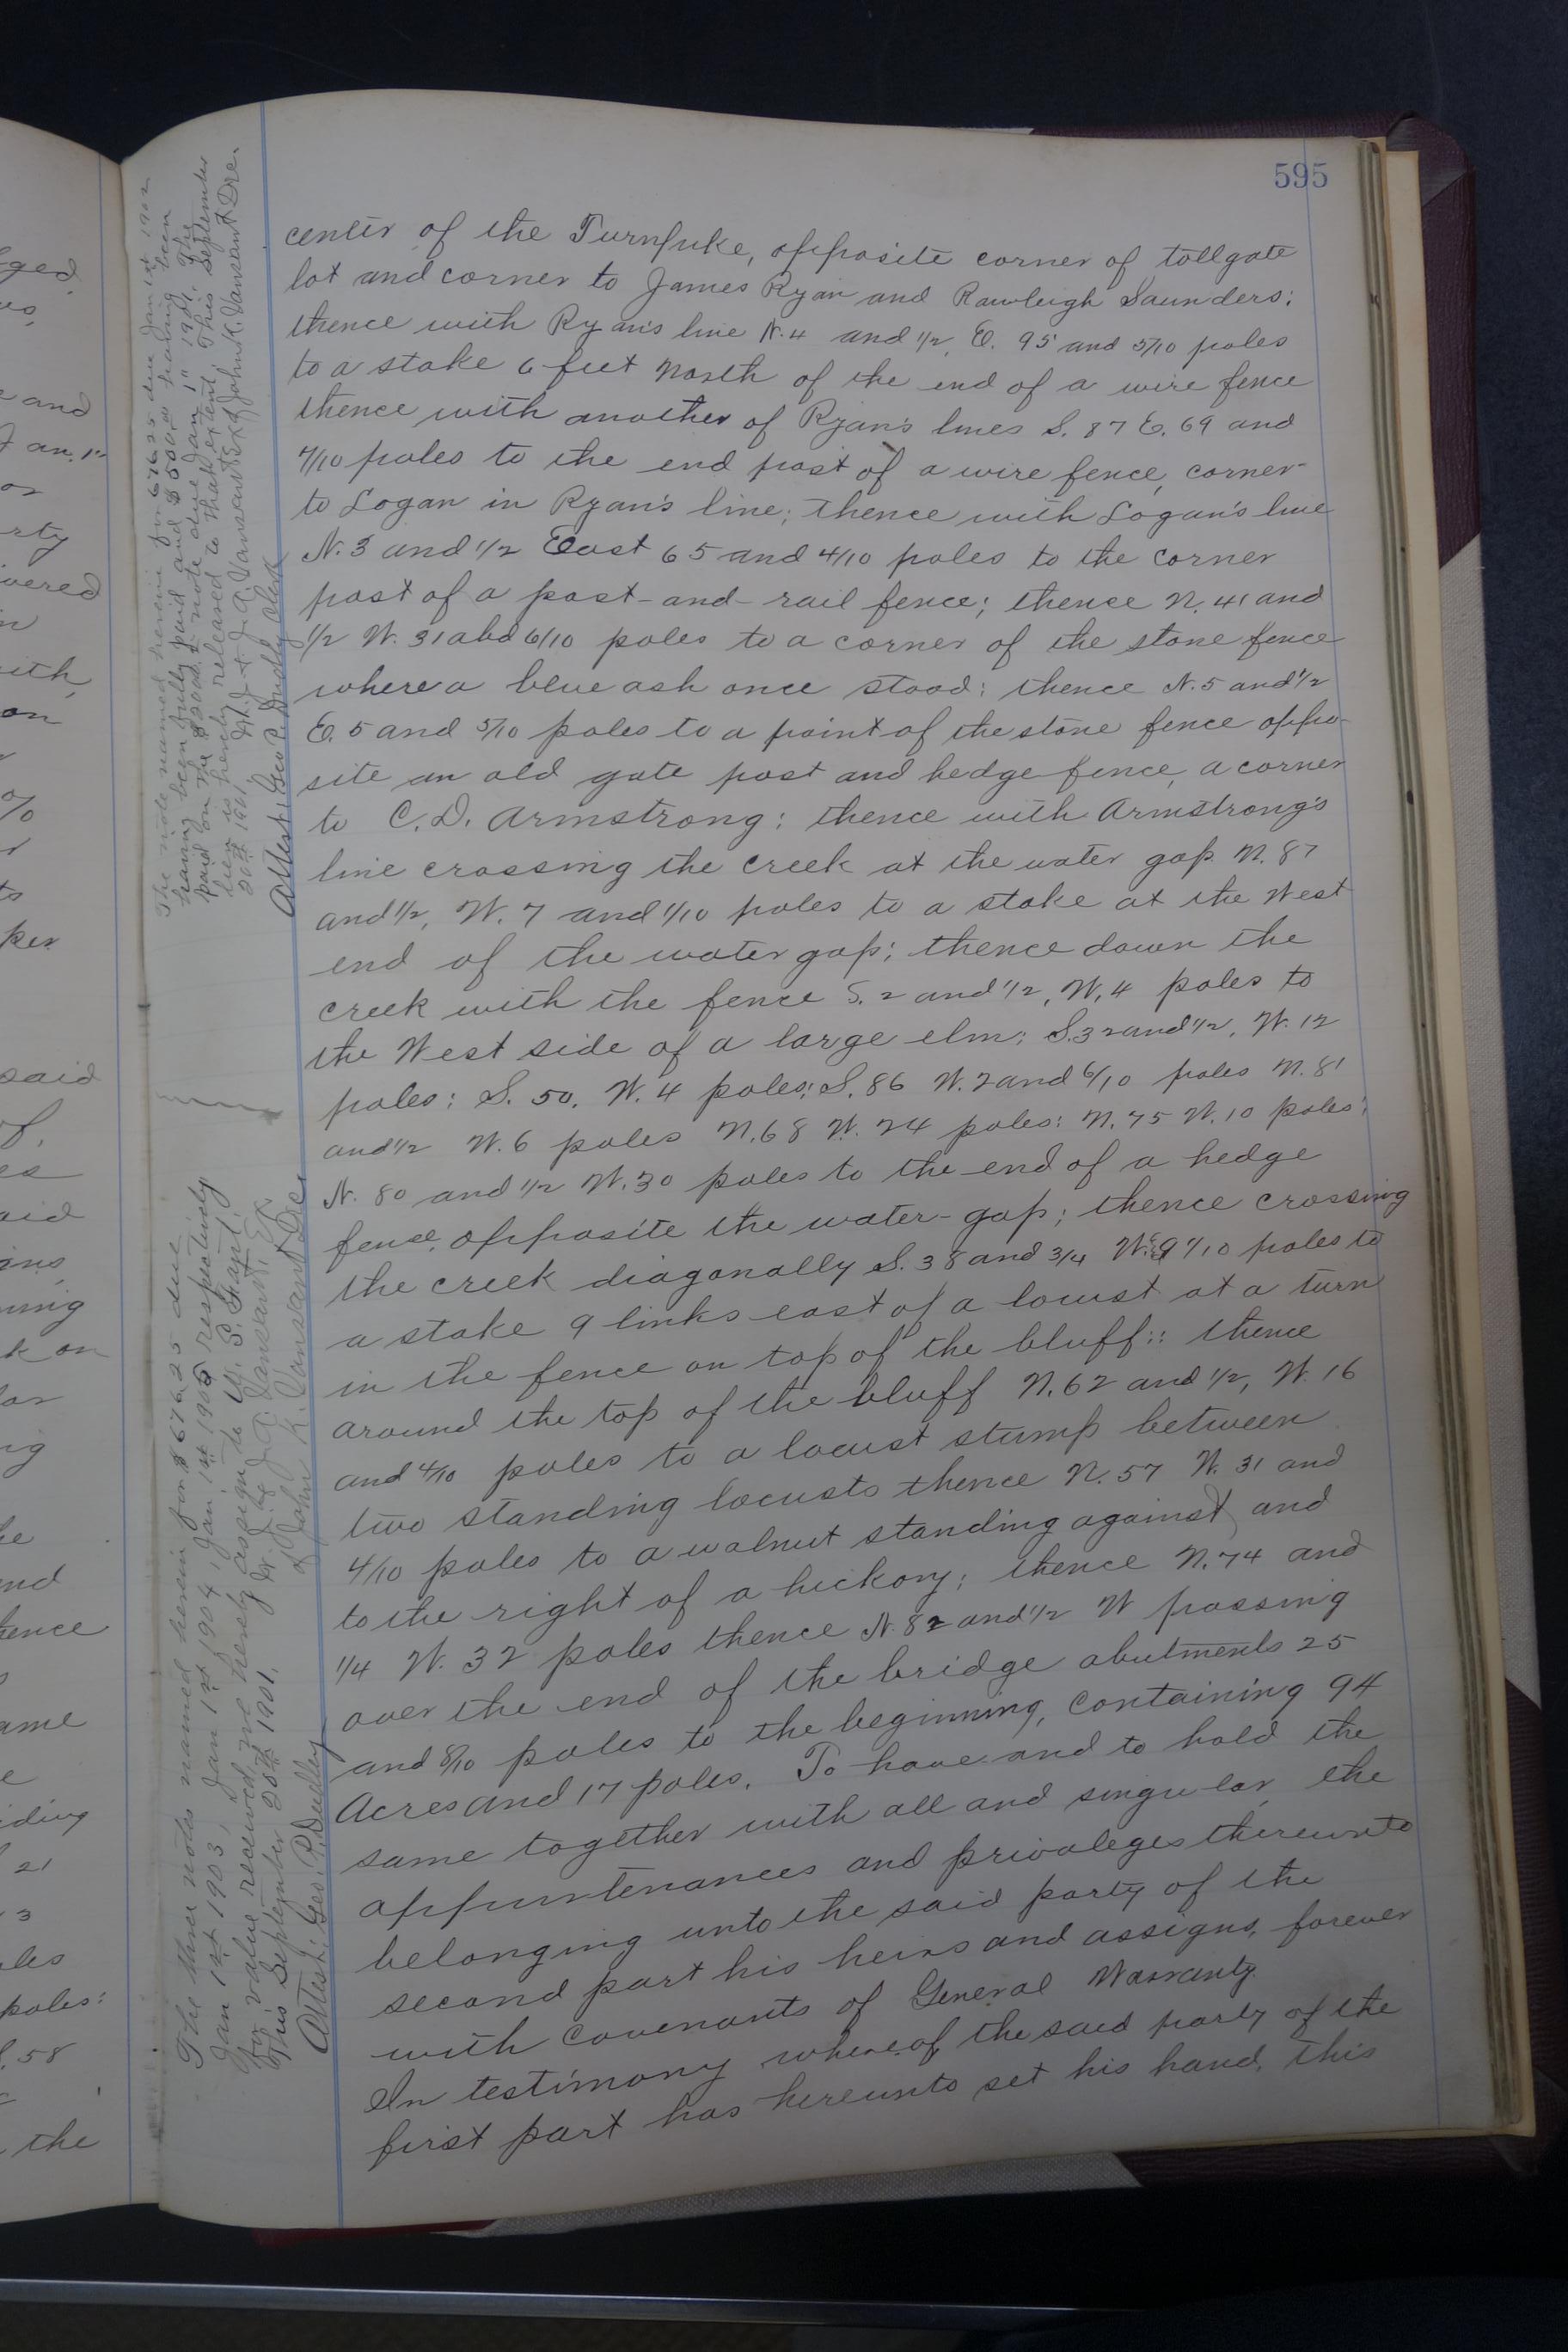 595
center of the Turnpuke, opposite corner of tollgate
lot and corner to James Ryan and Rawleigh Saunders;
thence with Ryan's line N. 4 and 1/2, E. 95 and 5/10 poles
to a stake 6 feet North of the end of a wire fence
thence with another of Ryan's lines S. 87 E. 69 and
7/10 poles to the end post of a wire fence, corner
to Logan in Ryan's line; thence with Logan's line
N. 3 and 1/2 East 65 and 4/10 poles to the corner
post of a post-and-rail fence; thence N. 41 and
1/2 W. 31 abd 6/10 poles to a corner of the stone fence
where a blue ash once stood; thence N. 5 and 1/2
E. 5 and 5/10 poles to a point of the stone fence oppo-
site an old gate post and hedge fence, a corner
to C. D. Armstrong: thence with Armstrong's
line crossing the creek at the water gap N. 87
and 1/2, W. 7 and 1/10 poles to a stake at the West
end of the water gap; thence down the
creek with the fence S. 2 and 1/2, W. 4 poles to
the West side of a large elm; S. 32 and 1/2, W. 12
poles; S. 50, W. 4 poles; S. 86 W. 2 and 6/10 poles N. 81
and 1/2 W. 6 poles N. 68 W. 24 poles: N. 75 W. 10 poles;
N. 80 and 1/2 W. 30 poles to the end of a hedge
fence, opposite the water-gap; thence crossing
the creek diagonally S. 38 and 3/4 W. 9 7/10 poles to
a stake 9 links east of a locust at a turn
in the fence on top of the bluff:: thence
around the top of the bluff N. 62 and 1/2, W. 16
and 4/10 poles to a locust stump between
two standing locusts thence N. 57 W. 31 and
4/10 poles to a walnut standing against and
to the right of a hickory; thence N. 74 and
1/4 W. 32 poles thence N. 82 and 1/2 W passing
over the end of the bridge abutments 25
and 8/10 poles to the beginning, containing 94
Acres and 17 poles. To have and to hold the
same together with all and singular, the
appurtenances and privaleges thereunto
belonging unto the said party of the
second part his heirs and assigns, forever
with covenants of General Warranty.
In testimony whereof the said party of the
first part has hereunto set his hand, this
The note named herein for 676.25 due Jan 1st 1902
having been fully paid and $500.00 having been
paid on the $2000.00 note due Jan 1" 1901. The
lien is hereby released to that extent, This September
20th 1901 W. J. & J. Q. Vansant Exs of John K. Vansant Dec.
Attest; Geo P. Dudley Clerk
The three nots named herein for $676.25 due
Jan 1st 1903, Jan 1st 1904, Jan, 1st 1905 respectively
for value received we hereby assign to U. S. Grant,
This September 20th 1901. W. J. & J. Q. Vansant, Ex.
of John K. Vansant Dec.
Attest; Geo. P. Dudley
ged,
and
Jan. 1"
or
rty
ivered
in
ith,
on
%
ts
ker
said
of.
es
aid
ins,
ning
k on
lar
ng
he
and
hence
ame
e
iding
21
3
les
poles:
S. 58
the